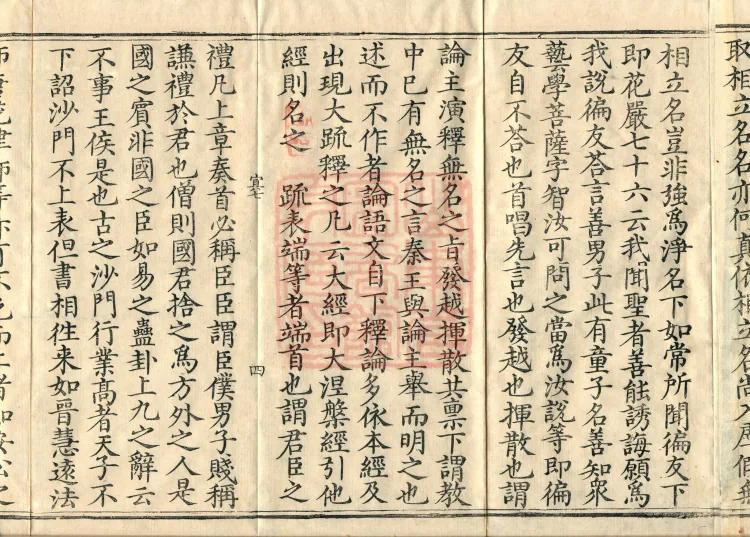 取相立名名亦何真依相立名尚入居假無
相立名豈非強為淨名下如常所聞徧友下
即花嚴七十六云我聞聖者善能誘誨願為
我說徧友荅言善男子此有童子名善知衆
藝學菩薩字智汝可問之當為汝說等即徧
友自不荅也首唱先言也發越也揮散也謂
論主演釋無名之旨發越揮散共禀下謂教
中已有無名之言秦王與論主舉而明之也
述而不作者論語文自下釋論多依本經及
出現大䟽釋之凡云大經即大涅槃經引他
經則名之　䟽表端等者端首也謂君臣之
寞七　四
禮凡上章奏首必稱臣臣謂臣僕男子賤稱
謙禮於君也僧則國君捨之為方外之人是
國之賓非國之臣如易之蠱卦上九之辭云
不事王侯是也古之沙門行業高者天子不
下詔沙門不上表但書相徃来如晉慧遠法